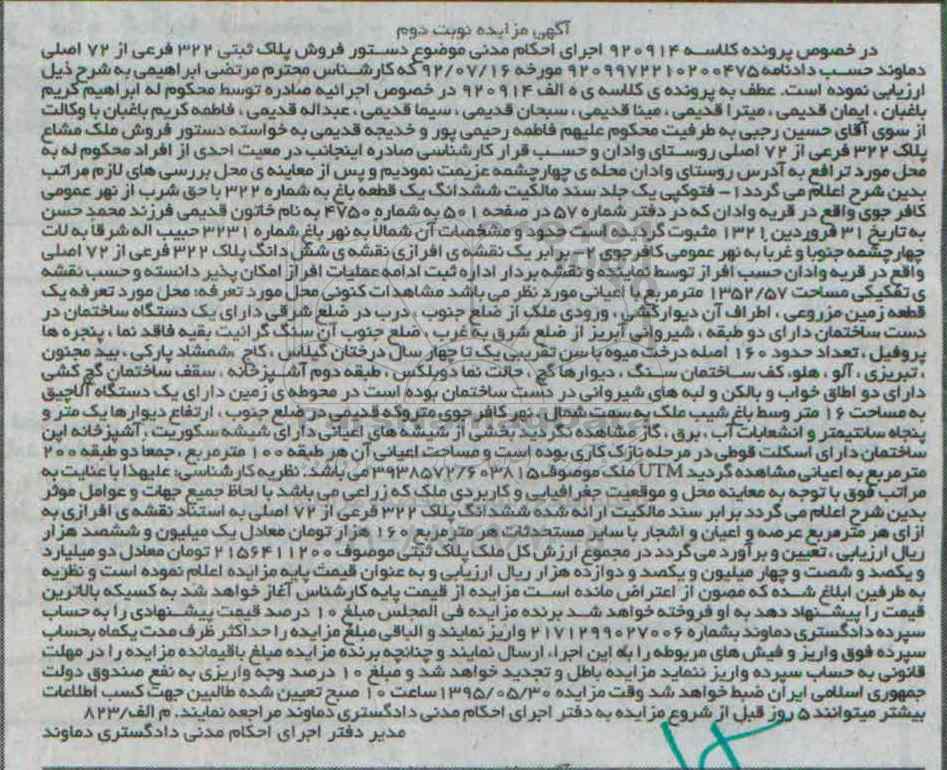 آگهی مزایده نوبت دوم
در خصوص پرونده کلاسه ۹۲۰۹۱۴ اجرای احکام مدنی موضوع دستور فروش پلاک ثبتی ۳۲۲ فرعی از ۷۲ اصلی
دماوند حسب دادنامه ۹۲۰۹۹۷۲۲۱۰۲۰۰۴۷۵ مورخه ۹۲/۰۷/۱۶ که کارشناس محترم مرتضی ابراهیمی به شرح ذیل
ارزیابی نموده است. عطف به پرونده ی کلاسه ی ه الف ۹۲۰۹۱۴ در خصوص اجرائیه صادره توسط محکوم له ابراهیم کریم
باغبان ، ایمان قدیمی ، میترا قدیمی ، مینا قدیمی ، سبحان قدیمی ، سیما قدیمی ، عبداله قدیمی ، فاطمه کریم باغبان با وکالت
از سوی آقای حسین رجبی به طرفیت محکوم علیهم فاطمه رحیمی پور و خدیجه قدیمی به خواسته دستور فروش ملک مشاع
پلاک ۳۲۲ فرعی از ۷۲ اصلی روستای وادان و حسب قرار کارشناسی صادره اینجانب در معیت احدی از افراد محکوم له به
محل مورد ترافع به آدرس روستای وادان محله ی چهارچشمه عزیمت نمودیم و پس از معاینه ی محل بررسی های لازم مراتب
بدین شرح اعلام می گردد ۱- فتوکپی یک جلد سند مالکیت ششدانگ یک قطعه باغ به شماره ۳۲۲ با حق شرب از نهر عمومی
کافر جوی واقع در قریه وادان که در دفتر شماره ۵۷ در صفحه ۵۰۱ به شماره ۴۷۵۰ به نام خاتون قدیمی فرزند محمد حسن
به تاریخ ۳۱ فروردین ۱۳۲۱ مثبوت گردیده است حدود و مشخصات آن شمالا به نهر باغ شماره ۳۲۳۱ حبیب اله شرقا به لات
چهارچشمه جنوبا و غربا به نهر عمومی کافرجوی ۲- برابر یک نقشه ی افرازی نقشه ی شش دانگ پلاک ۳۲۲ فرعی از ۷۲ اصلی
واقع در قریه وادان حسب افراز توسط نماینده و نقشه بردار اداره ثبت ادامه عملیات افراز امکان پذیر دانسته و حسب نقشه
ی تفکیکی مساحت ۱۳۵۲/۵۷ مترمربع با اعیانی مورد نظر می باشد مشاهدات کنونی محل مورد تعرفه: محل مورد تعرفه یک
قطعه زمین مزروعی ، اطراف آن دیوارکشی ، ورودی ملک از ضلع جنوب ، درب در ضلع شرقی دارای یک دستگاه ساختمان در
دست ساختمان دارای دو طبقه ، شیروانی آبریز از ضلع شرق به غرب ، ضلع جنوب آن سنگ گرانیت بقیه فاقد نما ، پنجره ها
پروفیل ، تعداد حدود ۱۶۰ اصله درخت میوه با سن تقریبی یک تا چهار سال درختان گیلاس ، کاج ،شمشاد پارکی ، بید مجنون
، تبریزی ، آلو ، هلو، کف ساختمان سنگ ، دیوارها گچ ، حالت نما دوبلکس ، طبقه دوم آشپزخانه ، سقف ساختمان گچ کشی
دارای دو اطاق خواب و بالکن و لبه های شیروانی در دست ساختمان بوده است در محوطه ی زمین دارای یک دستگاه آلاچیق
به مساحت ۱۶ متر وسط باغ شیب ملک به سمت شمال ، نهر کافر جوی متروکه قدیمی در ضلع جنوب ، ارتفاع دیوارها یک متر و
پنجاه سانتیمتر و انشعابات آب ، برق ، گاز مشاهده نگردید بخشی از شیشه های اعیانی دارای شیشه سکوریت ، آشپزخانه اپن
ساختمان دارای اسکلت قوطی در مرحله نازک کاری بوده است و مساحت اعیانی آن هر طبقه ۱۰۰ مترمربع ، جمعا دو طبقه ۲۰۰
مترمربع به اعیانی مشاهده گردید UTM ملک موصوف ۳۹۳۸۵۷۲/۶۰۳۸۱۵ می باشد. نظریه کارشناسی: علیهذا با عنایت به
مراتب فوق با توجه به معاینه محل و موقعیت جغرافیایی و کاربردی ملک که زراعی می باشد با لحاظ جمیع جهات و عوامل موثر
بدین شرح اعلام می گردد برابر سند مالکیت ارائه شده ششدانگ پلاک ۳۲۲ فرعی از ۷۲ اصلی به استناد نقشه ی افرازی به
ازای هر مترمربع عرصه و اعیان و اشجار با سایر مستحدثات هر مترمربع ۱۶۰ هزار تومان معادل یک میلیون و ششصد هزار
ریال ارزیابی ، تعیین و برآورد می گردد در مجموع ارزش کل ملک پلاک ثبتی موصوف ۲۱۵۶۴۱۱۲۰۰ تومان معادل دو میلیارد
و یکصد و شصت و چهار میلیون و یکصد و دوازده هزار ریال ارزیابی و به عنوان قیمت پایه مزایده اعلام نموده است و نظریه
به طرفین ابلاغ شده که مصون از اعتراض مانده است مزایده از قیمت پایه کارشناس آغاز خواهد شد به کسیکه بالاترین
قیمت را پیشنهاد دهد به او فروخته خواهد شد برنده مزایده فی المجلس مبلغ ۱۰ درصد قیمت پیشنهادی را به حساب
سپرده دادگستری دماوند بشماره ۲۱۷۱۲۹۹۰۲۷۰۰۶ واریز نمایند و الباقی مبلغ مزایده را حداکثر ظرف مدت یکماه بحساب
سپرده فوق واریز و فیش های مربوطه را به این اجرا، ارسال نمایند و چنانچه برنده مزایده مبلغ باقیمانده مزایده را در مهلت
قانونی به حساب سپرده واریز ننماید مزایده باطل و تجدید خواهد شد و مبلغ ۱۰ درصد وجه واریزی به نفع صندوق دولت
جمهوری اسلامی ایران ضبط خواهد شد وقت مزایده ۱۳۹۵/۰۵/۳۰ ساعت ۱۰ صبح تعیین شده طالبین جهت کسب اطلاعات
بیشتر میتوانند ۵ روز قبل از شروع مزایده به دفتر اجرای احکام مدنی دادگستری دماوند مراجعه نمایند. م الف/۸۲۳
مدیر دفتر اجرای احکام مدنی دادگستری دماوند